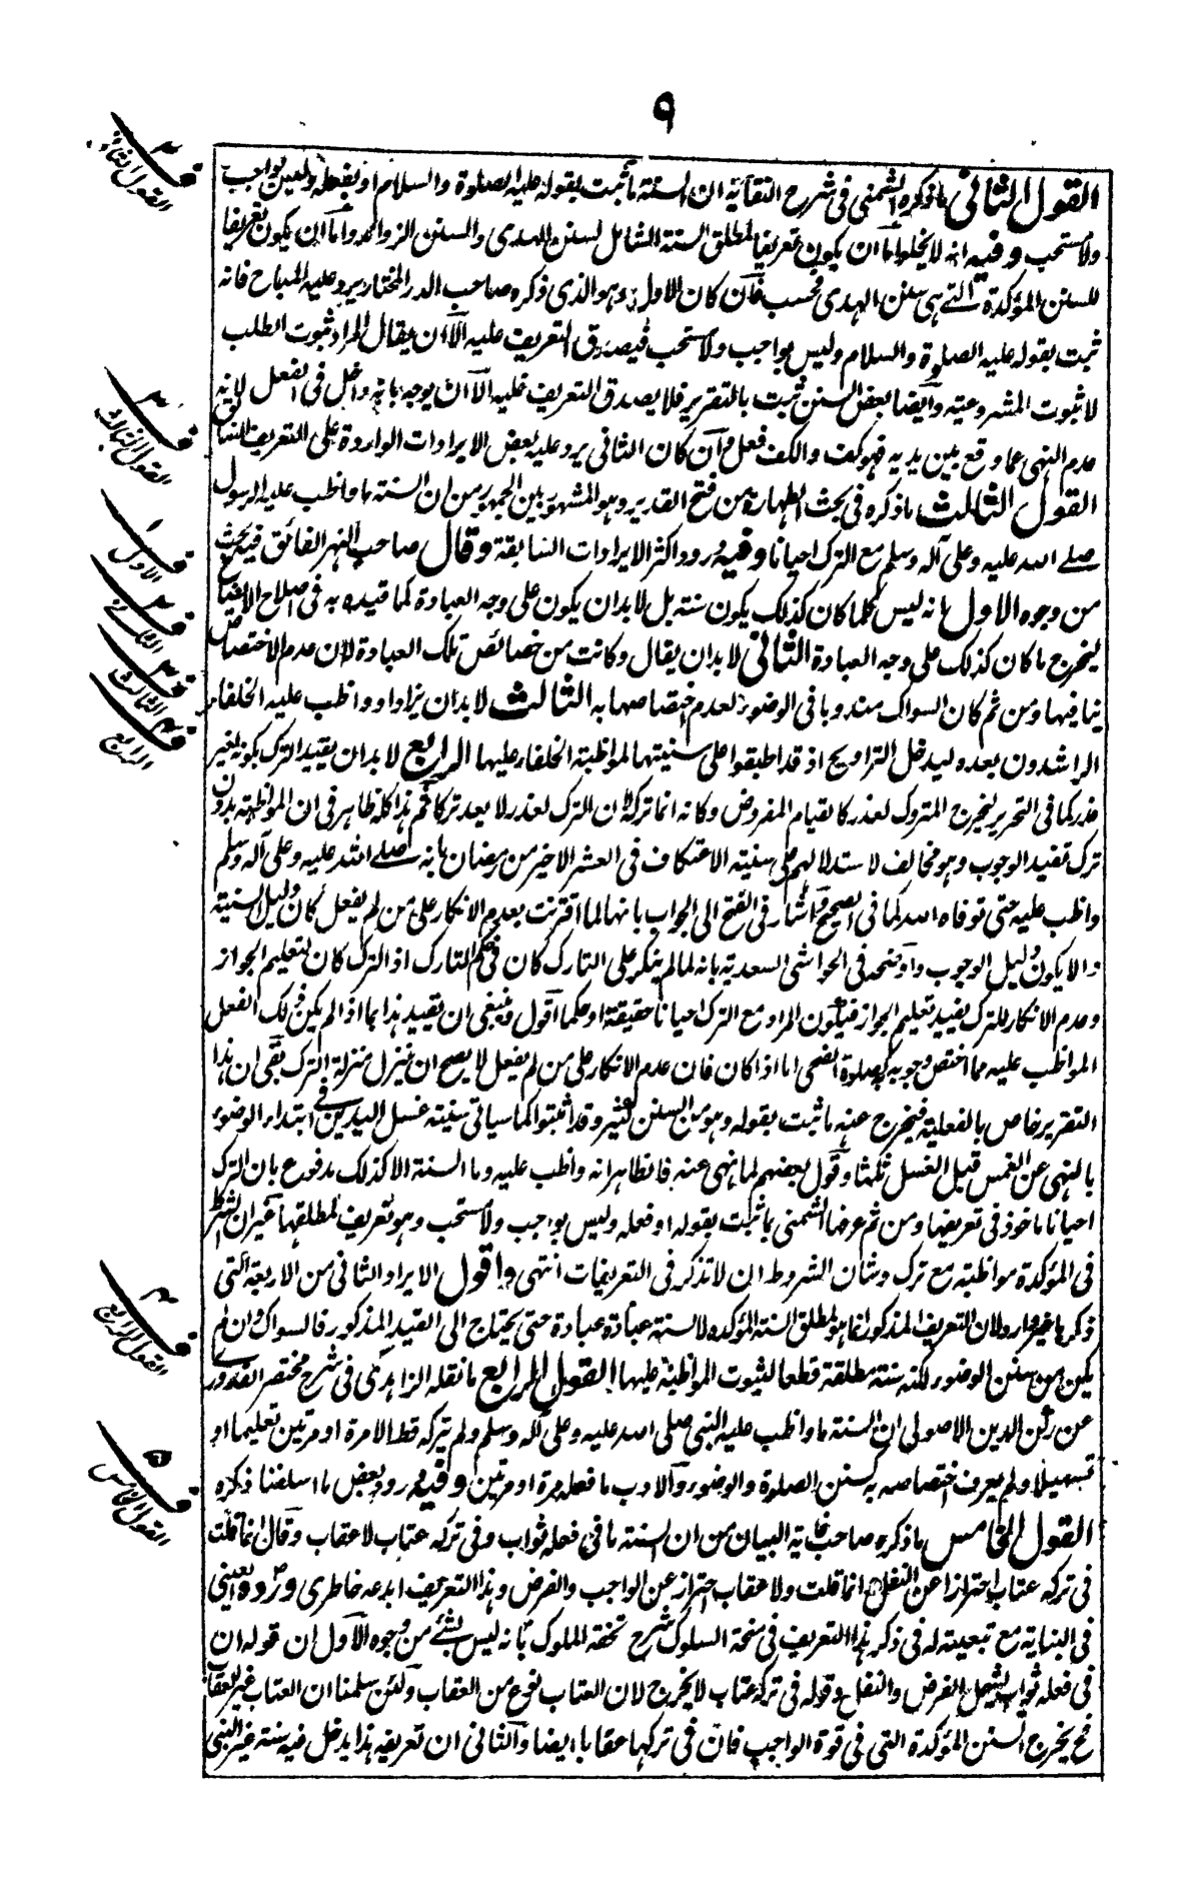 ٩
القول الثاني ما ذكره الشمني في شرح النقاية ان السنة ما ثبت بقوله عليه الصلوة والسلام او بفعله وليس بواجب
ولا مستحب وفيه انه لا يخلو اما ان يكون تعريفا لمطلق السنة الشامل لسنن الهدى والسنن الزوائد واما ان يكون تعريفا
للسنن المؤكدة التي هي سنن الهدى فحسب فان كان الاول وهو الذي ذكره صاحب الدر المختار يرد عليه المباح فانه
ثبت بقوله عليه الصلوة والسلام وليس بواجب ولا مستحب فيصدق التعريف عليه الا ان يقال المراد ثبوت الطلب
لا ثبوت المشروعية وايضا بعض السنن ثبت بالتقرير فلا يصدق التعريف عليه الا ان يوجه بانه داخل في الفعل لانه
عدم النهي عما وقع بين يديه فهو كف والكف فعل وان كان الثاني يرد عليه بعض الايرادات الواردة على التعريف السابق
القول الثالث ما ذكره في بحث الطهارة من فتح القدير وهو المشهور بين الجمهور من ان السنة ما واظب عليه الرسول
صلى الله عليه وعلى آله وسلم مع الترك احيانا وفيه ورود اكثر الايرادات السابقة وقال صاحب النهر الفائق فيه بحث
من وجوه الاول بانه ليس كلما كان كذلك يكون سنة بل لا بد ان يكون على وجه العبادة كما قيده به في اصلاح الايضاح
ليخرج ما كان كذلك على وجه العبادة الثاني لا بد ان يقال وكانت من خصائص تلك العبادة لان عدم الاختصاص
ينافيها ومن ثم كان السواك مندوبا في الوضوء لعدم اختصاصها به الثالث لا بد ان يزاد او واظب عليه الخلفاء
الراشدون بعده ليدخل التراويح اذ قد اطبقوا على سنيتها لمواظبة الخلفاء عليها الرابع لا بد ان يقيد الترك بكونه لغير
عذر كما في التحرير ليخرج المتروك لعذر كالقيام المفروض وكانه انما تركه لان الترك لعذر لا يعد تركا ثم هذا كله ظاهر في ان المواظبة بدون
ترك تفيد الوجوب وهو مخالف لاستدلالهم على سنية الاعتكاف في العشر الاخير من رمضان بانه صلى الله عليه وعلى آله وسلم
واظب عليه حتى توفاه الله كما في الصحيح واشار في الفتح الى الجواب بانها لما اقترنت بعدم الانكار على من لم يفعل كان دليل السنية
والا يكون دليل الوجوب واوضحه في الحواشي السعدية بانه لما لم ينكر على التارك كان في حكم التارك اذ الترك كان لتعليم الجواز
وعدم الانكار للترك يفيد تعليم الجواز فيكون المراد مع الترك احيانا حقيقة او حكما اقول وينبغي ان يقيد هذا بما اذا لم يكن ذلك الفعل
المواظب عليه مما اختص وجوبه كصلوة الضحى اما اذا كان فان عدم الانكار على من لم يفعل لا يصح ان ينزل منزلة الترك بقي ان هذا
التقرير خاص بالفعلية فيخرج عنه ما ثبت بقوله وهو من السنن كثير وقد اثبتوا كما سياتي سنية غسل اليدين في ابتداء الوضوء
بالنهي عن الغمس قبل الغسل ثلثا وقول بعضهم لما نهى عنه فالظاهر انه واظب عليه وما السنة الا كذلك مدفوع بان الترك
احيانا ماخوذ في تعريفها ومن ثم عرفها الشمني بما ثبت بقوله او فعله وليس بواجب ولا مستحب وهو تعريف لمطلقها غير ان الشرط
في المؤكدة مواظبته مع ترك وشان الشروط ان لا تذكر في التعريفات انتهى واقول الايراد الثاني من الاربعة التي
ذكرها غير وارد لان التعريف المذكور انما هو لمطلق السنة المؤكدة لا لسنة عبادة عبادة حتى يحتاج الى القيد المذكور فالسواك وان لم
يكن من سنن الوضوء لكنه سنة مطلقة قطعا لثبوت المواظبة عليها القول الرابع ما نقله الزاهدي في شرح مختصر القدوري
عن ركن الدين الاصولي ان السنة ما واظب عليه النبي صلى الله عليه وعلى آله وسلم ولم يتركه قط الا مرة او مرتين تعليما او
تسهيلا ولم يعرف اختصاصه به كسنن الصلوة والوضوء والادب ما فعله مرة او مرتين وفيه ورود بعض ما اسلفنا ذكره
القول الخامس ما ذكره صاحب غاية البيان من ان السنة ما في فعله ثواب وفي تركه عتاب لا عقاب وقال انما قلت
في تركه عتاب احترازا عن النفل وانما قلت ولا عقاب احترازا عن الواجب والفرض وهذا التعريف ابدعه خاطري ورده العيني
في البناية مع تبعيته له في ذكر هذا التعريف في منحة السلوك شرح تحفة الملوك بانه ليس بشئ من وجوه الاول ان قوله ان
في فعله ثواب يشمل الفرض والنفل وقوله في تركه عتاب لا يخرج لان العتاب نوع من العقاب ولئن سلمنا ان العتاب غير العقاب
فح يخرج السنن المؤكدة التي في قوة الواجب فان في تركها عقابا ايضا والثاني ان تعريفه هذا يدخل فيه سنة غير النبي
ف ٢ القول الثاني
ف ٣ القول الثالث
ف ١ الاول
ف ٢ الثاني
ف ٣ الثالث
ف ٤ الرابع
ف ٤ القول الرابع
ف ٥ القول الخامس